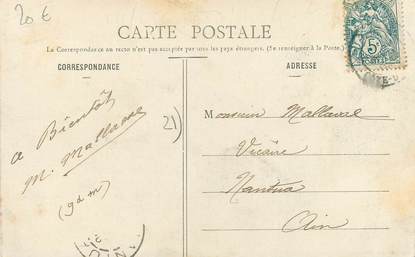 20 €
CARTE POSTALE
La Correspondance au recto n'est pas acceptée par tous les pays étrangers. (Se renseigner à la Poste.)
CORRESPONDANCE
ADRESSE
a Bientôt
M. Mallavre
(gd m)
21)
Monsieur Mallavre
Vicaire
Nantua
Ain
5c